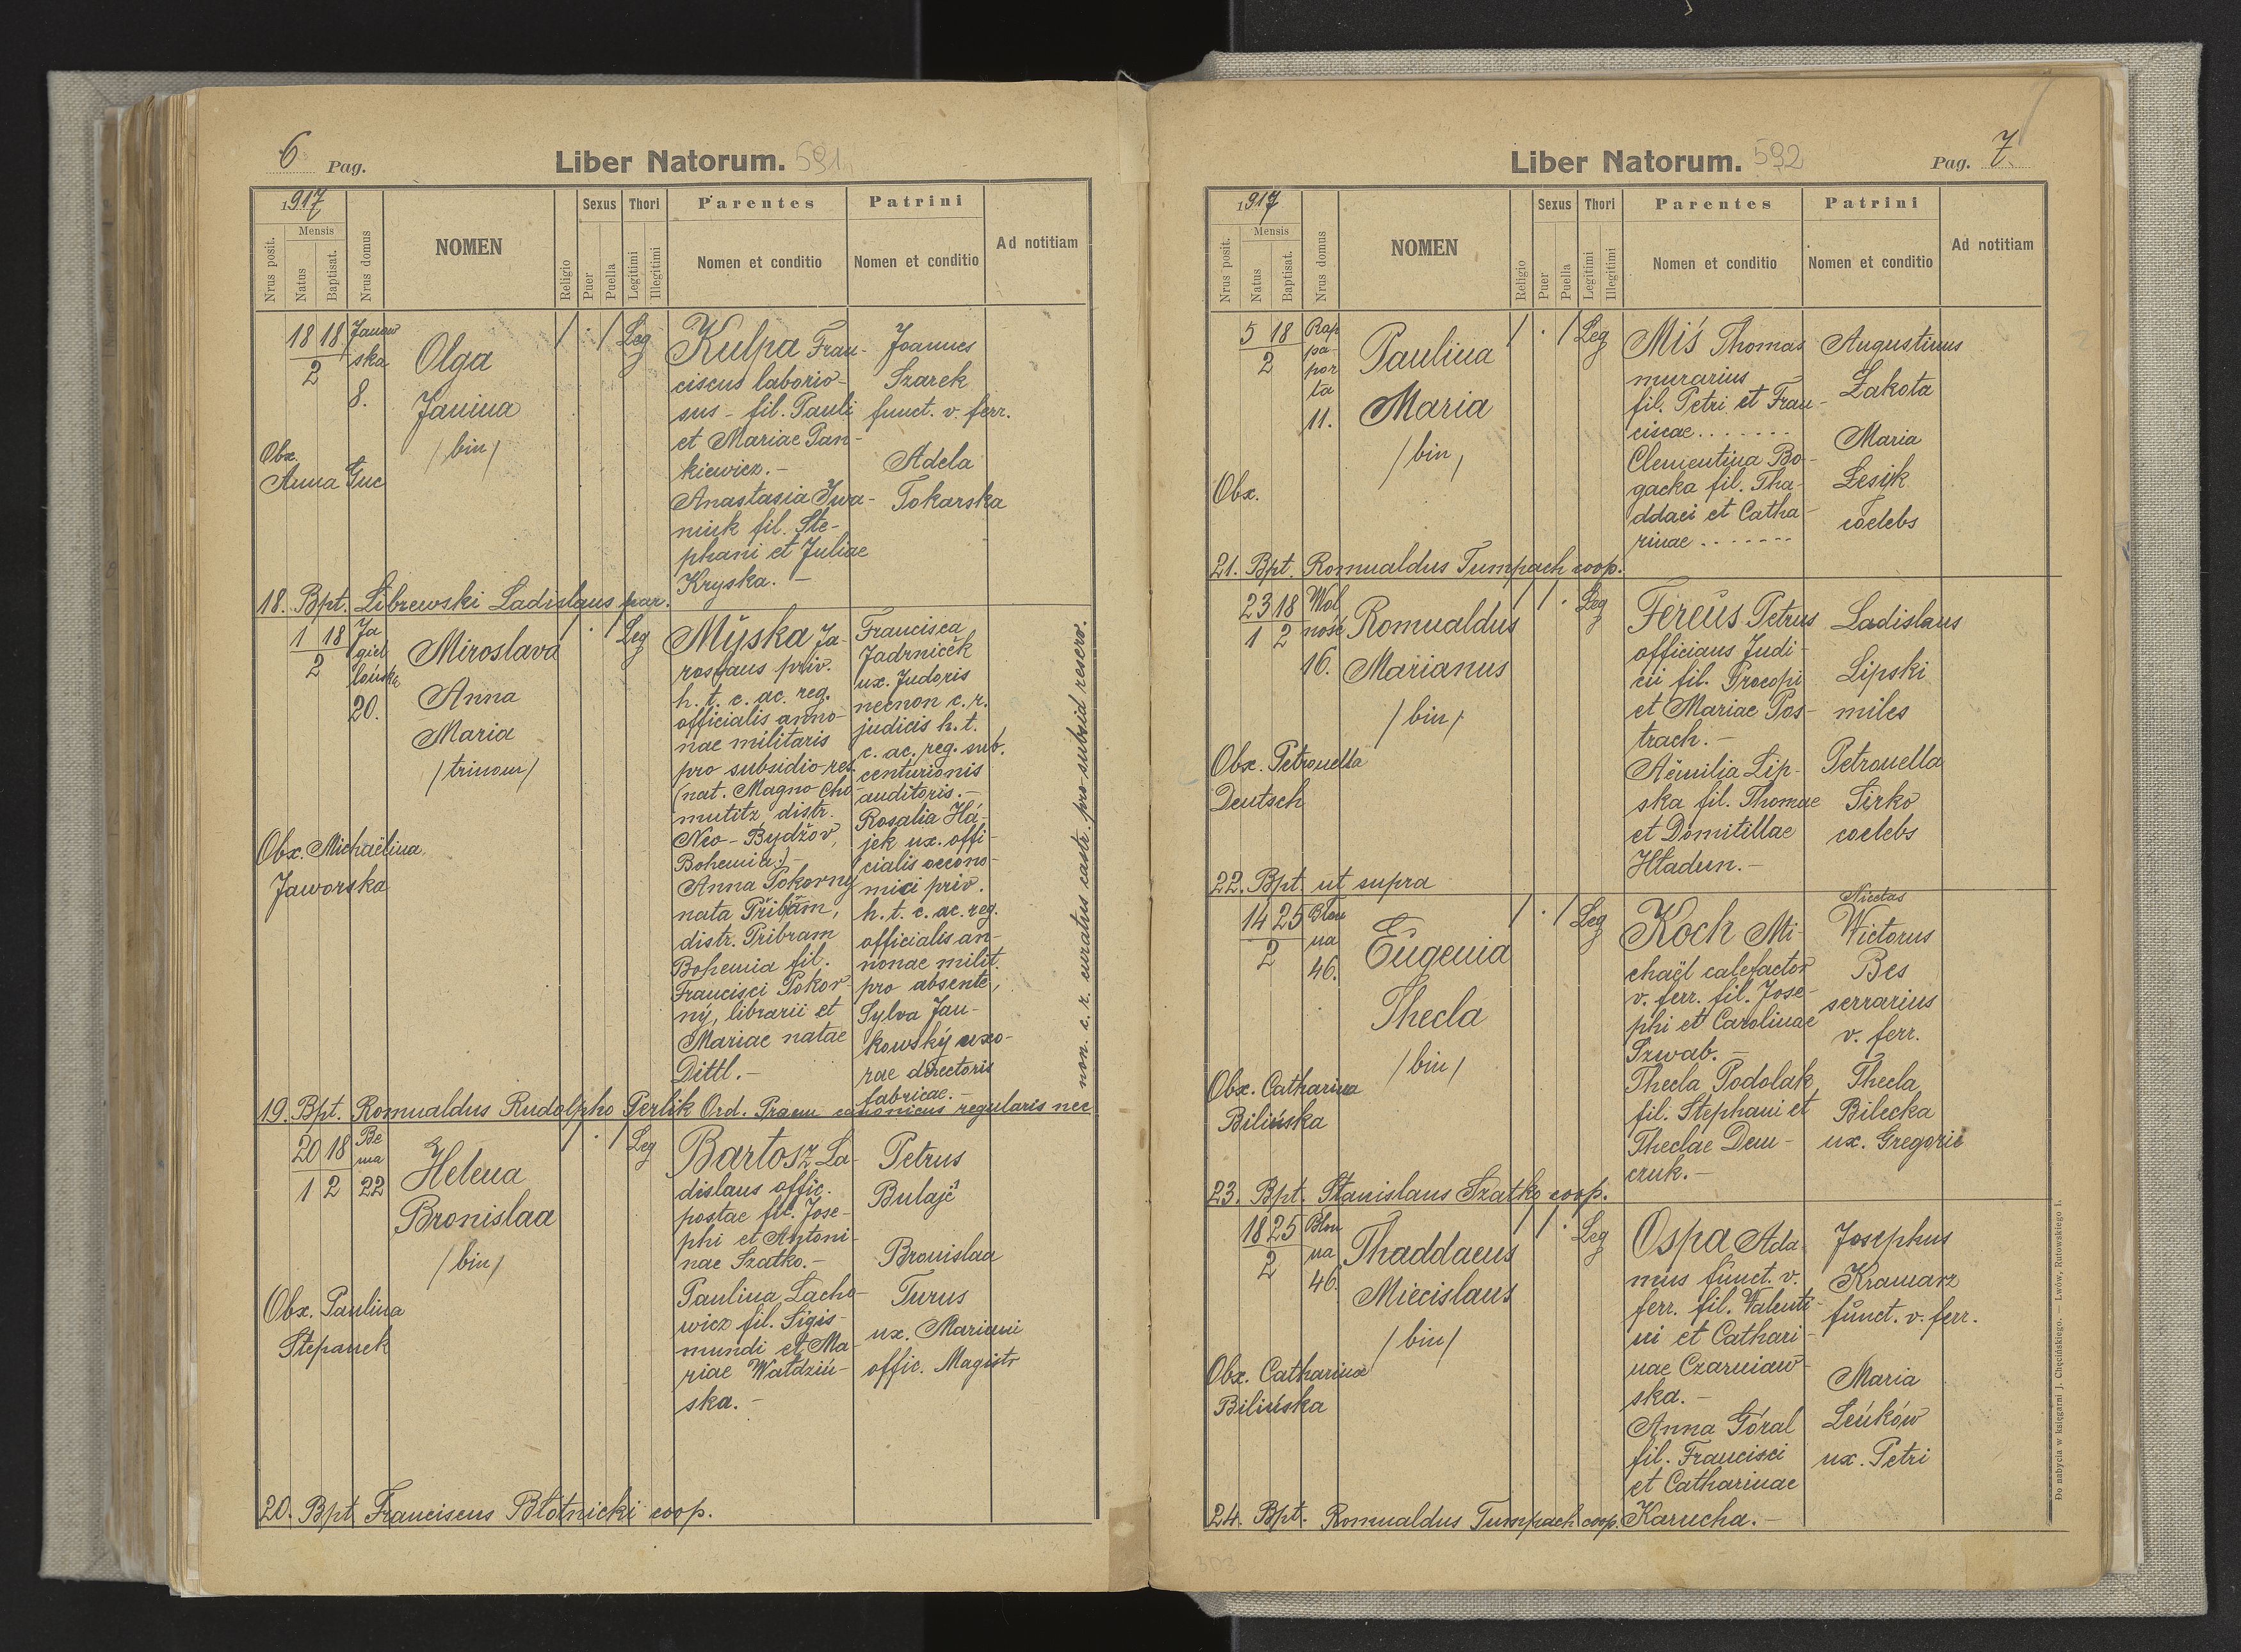 6 Pag.
Liber Natorum. 591
1917
Mensis
Nrus posit.
Natus
Baptisat.
Nrus domus
NOMEN
Religio
Sexus
Puer
Puella
Thori
Legitimi
Illegitimi
Parentes
Nomen et conditio
Patrini
Nomen et conditio
Ad notitiam
18 18
2
Janow
ska
8.
Olga
Janina
/bin/
Obx.
Anna Guc
Leg
Kulpa Fran-
ciscus laborio-
sus - fil. Pauli
et Mariae Pan-
kiewicz. -
Anastasia Iwa-
niuk fil. Ste-
phani et Juliae
Kryska. -
Joannes
Szarek
funct. v. ferr.
Adela
Tokarska
18. Bpt. Librewski Ladislaus par.
1 18
2
Ja
giel
lońska
20.
Miroslava
Anna
Maria
/trinom/
Obx. Michaëlina
Jaworska
Leg
Myska Ja-
roslaus priv.
h. t. c. ac. reg.
officialis anno-
nae militaris
pro subsidio res.
(nat. Magno Cho-
mutitz distr.
Neo-Bydžov,
Bohemia) -
Anna Pokorny
nata Přibam,
distr. Pribram
Bohemia fil.
Francisci Pokor-
ný, librarii et
Mariae natae
Dittl. -
Francisca
Jadrniček
ux. Judoris
necnon c. r.
judicis h. t.
c. ac. reg. sub.
centurionis
auditoris. -
Rosalia Há-
jek ux. offi-
cialis oecono-
mici priv.
h. t. c. ac. reg.
officialis an-
nonae milit.
pro absente,
Sylva Jan-
kowský uxo-
rae directoris
fabricae. -
19. Bpt. Romualdus Rudolpho Perlik Ord. Praem canonicus regularis nec
non. c. r. curatus castr. pro subsid reserv.
20 18
1 2
Be
ma
22
Helena
Bronislaa
/bin/
Obx. Paulina
Stepanek
Leg
Bartosz La-
dislaus offic.
postae fil. Jose-
phi et Antoni-
nae Szatko. -
Paulina Lacho-
wicz fil. Sigis-
mundi et Ma-
riae Waldziń-
ska. -
Petrus
Bulajć
Bronislaa
Turus
ux. Mariani
offic. Magistr
20. Bpt Franciscus Błotnicki coop.
Liber Natorum. 592
Pag. 7.
1917
Mensis
Nrus posit.
Natus
Baptisat.
Nrus domus
NOMEN
Religio
Sexus
Puer
Puella
Thori
Legitimi
Illegitimi
Parentes
Nomen et conditio
Patrini
Nomen et conditio
Ad notitiam
5 18
2
Rap
pa-
por
ta
11.
Paulina
Maria
/bin,
Obx.
Leg
Miś Thomas
murarius
fil. Petri et Fran-
ciscae.......
Clementina Bo-
gacka fil. Tha-
ddaei et Catha-
rinae.......
Augustinus
Żakota
Maria
Łesyk
coelebs
21. Bpt. Romualdus Tumpach coop.
23 18
1 2
Wol
ność
16.
Romualdus
Marianus
/bin/
Obx. Petronella
Deutsch
Leg
Fereüs Petrus
officians Judi-
cii fil. Procopi
et Mariae Pos-
trach. -
Aëmilia Lip-
ska fil. Thomae
et Domitillae
Hładun. -
Ladislaus
Lipski
miles
Petronella
Sirko
coelebs
22. Bpt. ut supra
14 25
2
Blon
na
46.
Eugenia
Thecla
/bin/
Obx. Catharina
Bilińska
Leg
Koch Mi-
chaël calefactor
v. ferr. fil. Jose-
phi et Carolinae
Szwab. -
Thecla Podolak,
fil. Stephani et
Theclae Dem-
czuk. -
Nicetas
Wictorus
Bes
serrarius
v. ferr.
Thecla
Bilecka
ux. Gregorii
23. Bpt. Stanislaus Szatko coop.
18 25
2
Blon
na
46.
Thaddaeus
Miecislaus
/bin/
Obx. Catharina
Bilińska
Leg
Ospa Ada-
mus funct. v.
ferr. fil. Valenti-
ni et Cathari-
nae Czarniaw-
ska. -
Anna Góral
fil. Francisci
et Catharinae
Karucha. -
Josephus
Kramarz
funct. v. ferr.
Maria
Leńków
ux. Petri
24. Bpt. Romualdus Tumpach coop.
Do nabycia w księgarni J. Chęcińskiego. — Lwów, Rutowskiego 1.
303